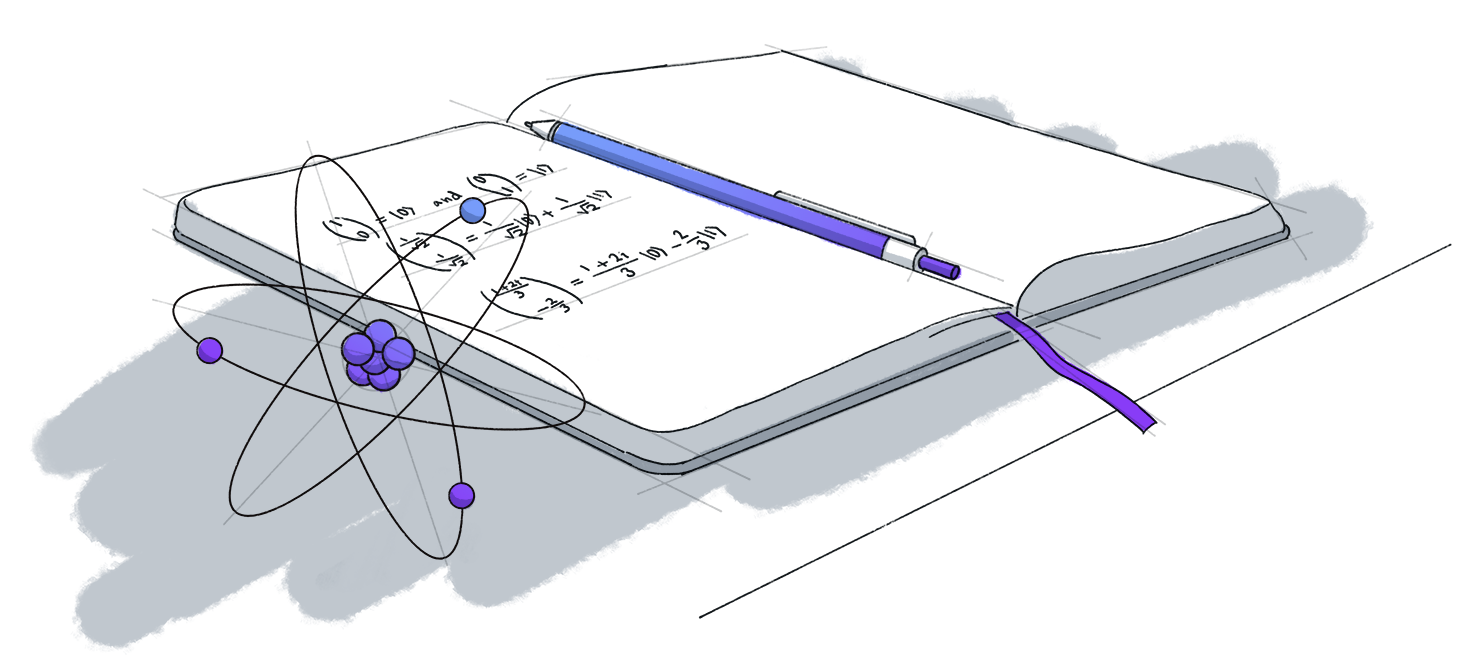 (1 0) = |0⟩ and (0 1) = |1⟩
(1/√2 -1/√2) = 1/√2|0⟩ + 1/√2|1⟩
(1+2i/3 -2/3) = 1+2i/3 |0⟩ - 2/3|1⟩